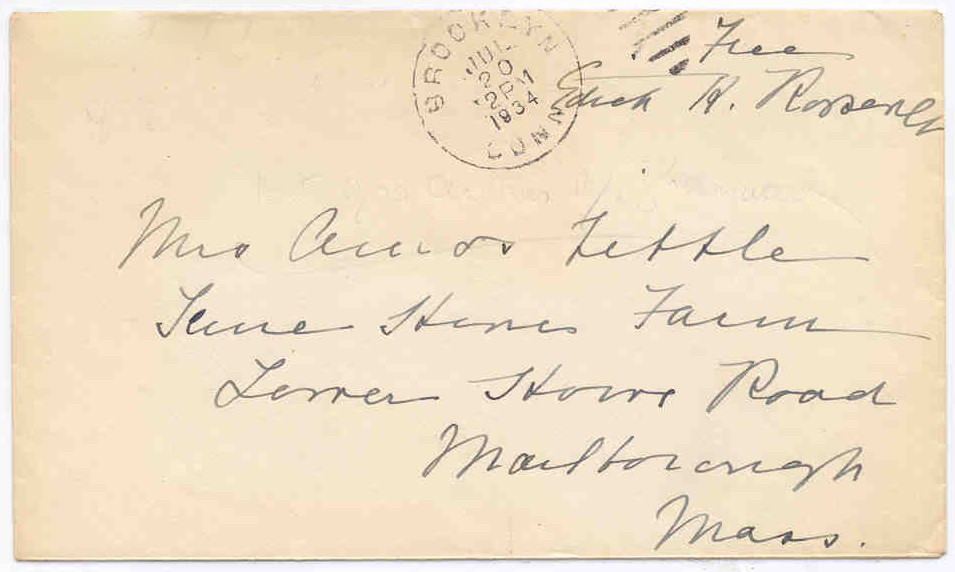 BROOKLYN
JUL
20
2 PM
1934
CONN
Free
Edith K. Roosevelt
Mrs Amos Little
Farm
Lower Road
Marlborough
Mass.